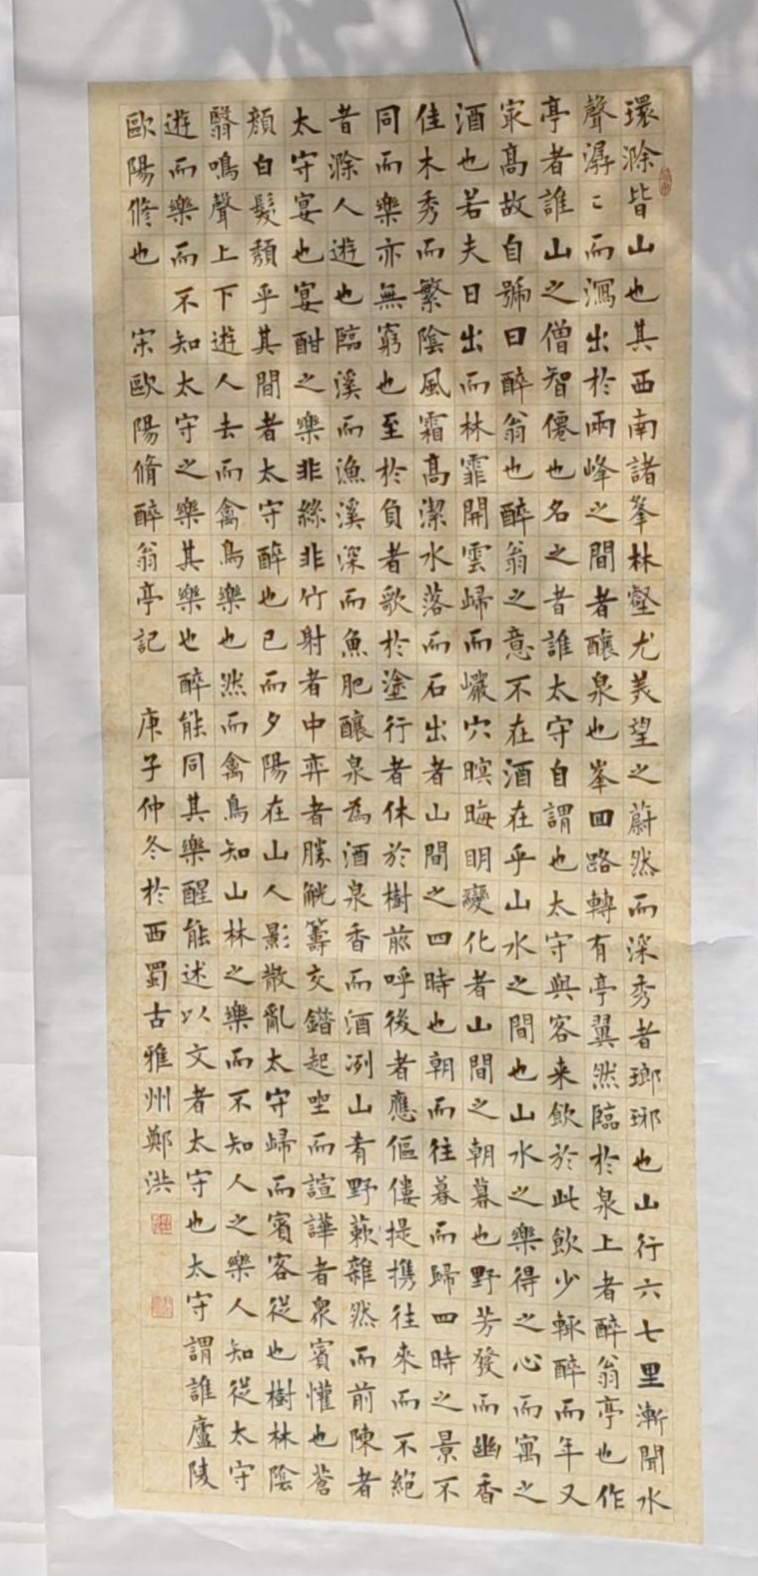 環滁皆山也其西南諸峯林壑尤美望之蔚然而深秀者瑯琊也山行六七里漸聞水
聲潺〻而瀉出於兩峰之間者釀泉也峯回路轉有亭翼然臨於泉上者醉翁亭也作
亭者誰山之僧智僊也名之者誰太守自謂也太守與客来飲於此飲少輒醉而年又
㝡高故自號曰醉翁也醉翁之意不在酒在乎山水之間也山水之樂得之心而寓之
酒也若夫日出而林霏開雲歸而巖穴暝晦明變化者山間之朝暮也野芳發而幽香
佳木秀而繁陰風霜高潔水落而石出者山間之四時也朝而往暮而歸四時之景不
同而樂亦無窮也至於負者歌於塗行者休於樹前呼後者應傴僂提携往來而不絕
者滁人遊也臨溪而漁溪深而魚肥釀泉為酒泉香而酒冽山肴野蔌雜然而前陳者
太守宴也宴酣之樂非絲非竹射者中弈者勝觥籌交錯起坐而諠譁者衆賓懽也蒼
顏白髮頹乎其間者太守醉也已而夕陽在山人影散亂太守歸而賓客從也樹林陰
翳鳴聲上下遊人去而禽鳥樂也然而禽鳥知山林之樂而不知人之樂人知從太守
遊而樂而不知太守之樂其樂也醉能同其樂醒能述以文者太守也太守謂誰廬陵
歐陽修也 宋歐陽脩醉翁亭記 庚子仲冬於西蜀古雅州鄭洪